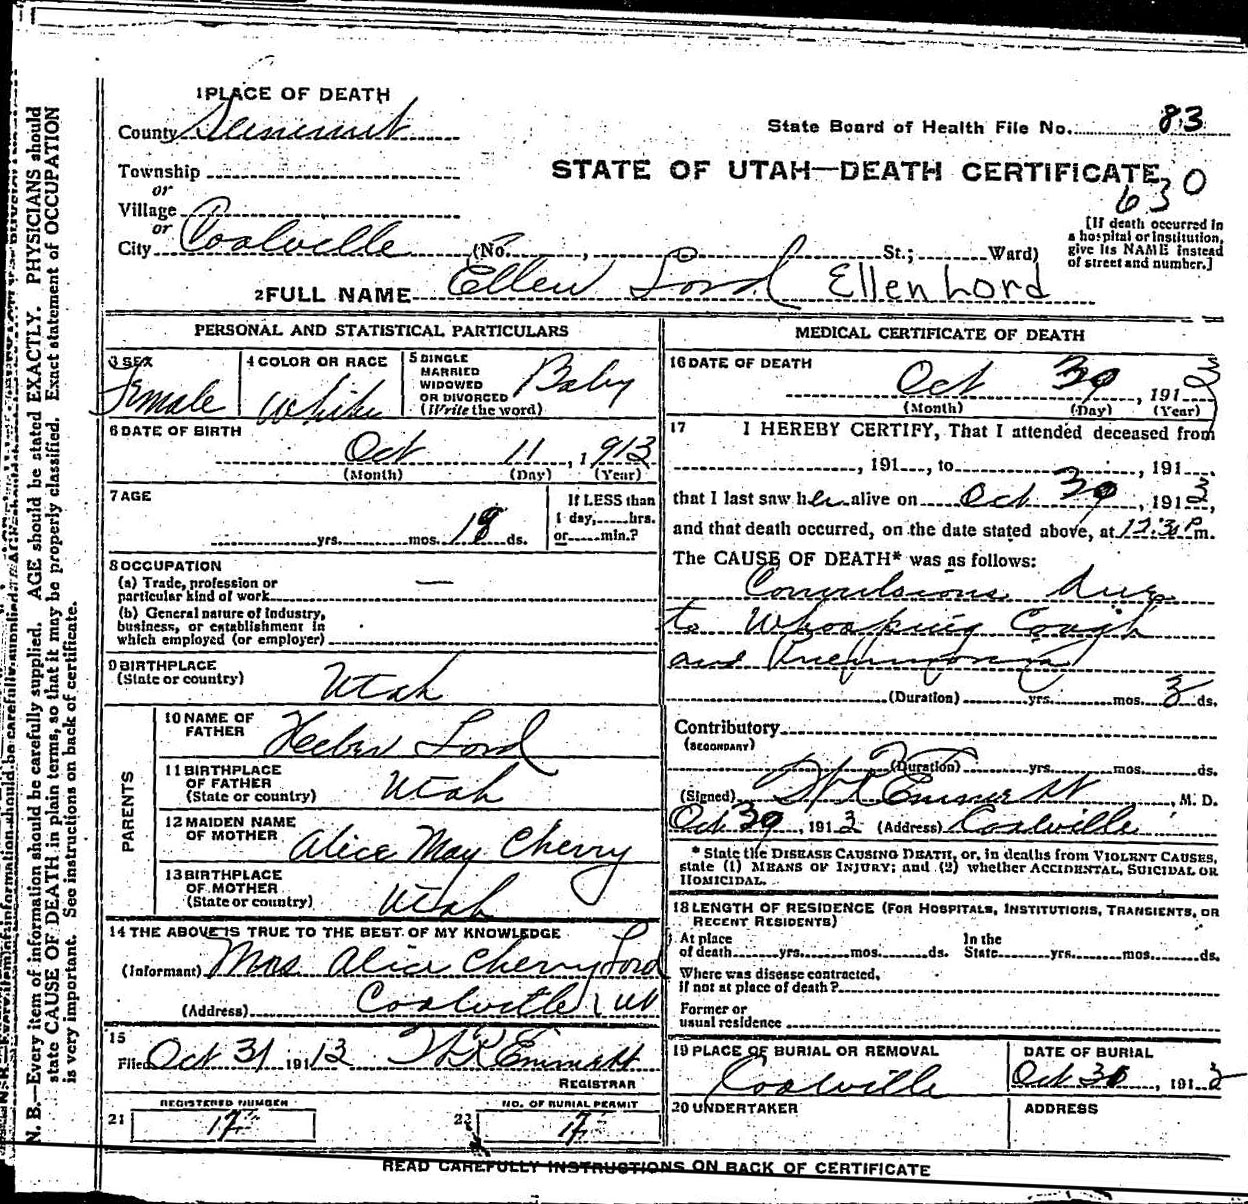 1 PLACE OF DEATH
County Summit
State Board of Health File No. 83
Township
STATE OF UTAH—DEATH CERTIFICATE
630
or
Village
or
City Coalville (No. , St.; Ward)
[If death occurred in
a hospital or institution,
give its NAME instead
of street and number.]
2 FULL NAME Ellen Lord Ellen Lord
PERSONAL AND STATISTICAL PARTICULARS
3 SEX
Female
4 COLOR OR RACE
White
5 SINGLE
MARRIED
WIDOWED
OR DIVORCED
(Write the word)
Baby
6 DATE OF BIRTH
Oct 11, 1913
(Month) (Day) (Year)
7 AGE
yrs. mos. 18 ds.
If LESS than
1 day, hrs.
or min.?
8 OCCUPATION
(a) Trade, profession or
particular kind of work —
(b) General nature of Industry,
business, or establishment in
which employed (or employer)
9 BIRTHPLACE
(State or country)
Utah
PARENTS
10 NAME OF
FATHER
Heber Lord
11 BIRTHPLACE
OF FATHER
(State or country)
Utah
12 MAIDEN NAME
OF MOTHER
Alice May Cherry
13 BIRTHPLACE
OF MOTHER
(State or country)
Utah
14 THE ABOVE IS TRUE TO THE BEST OF MY KNOWLEDGE
(Informant) Mrs. Alice Cherry Lord
(Address) Coalville Ut
15
Filed Oct 31 1913
REGISTRAR
REGISTERED NUMBER
21 17
NO. OF BURIAL PERMIT
22 17
MEDICAL CERTIFICATE OF DEATH
16 DATE OF DEATH
Oct , 1913
(Month) (Day) (Year)
17 I HEREBY CERTIFY, That I attended deceased from
, 191 , to , 191
that I last saw her alive on Oct , 1913,
and that death occurred, on the date stated above, at 12:30 P m.
The CAUSE OF DEATH* was as follows:
Convulsions due
to Whooping Cough
and Pneumonia
(Duration) yrs. mos. 3 ds.
Contributory
(SECONDARY)
(Duration) yrs. mos. ds.
(Signed) , M. D.
Oct , 1913 (Address) Coalville
* State the DISEASE CAUSING DEATH, or, in deaths from VIOLENT CAUSES,
state (1) MEANS OF INJURY; and (2) whether ACCIDENTAL, SUICIDAL OR
HOMICIDAL.
18 LENGTH OF RESIDENCE (FOR HOSPITALS, INSTITUTIONS, TRANSIENTS, OR
RECENT RESIDENTS)
At place
of death yrs. mos. ds.
In the
State yrs. mos. ds.
Where was disease contracted,
if not at place of death?
Former or
usual residence
19 PLACE OF BURIAL OR REMOVAL
Coalville
DATE OF BURIAL
Oct , 1913
20 UNDERTAKER
ADDRESS
READ CAREFULLY INSTRUCTIONS ON BACK OF CERTIFICATE
N. B.—Every item of information should be carefully supplied. AGE should be stated EXACTLY. PHYSICIANS should
state CAUSE OF DEATH in plain terms, so that it may be properly classified. Exact statement of OCCUPATION
is very important. See instructions on back of certificate.